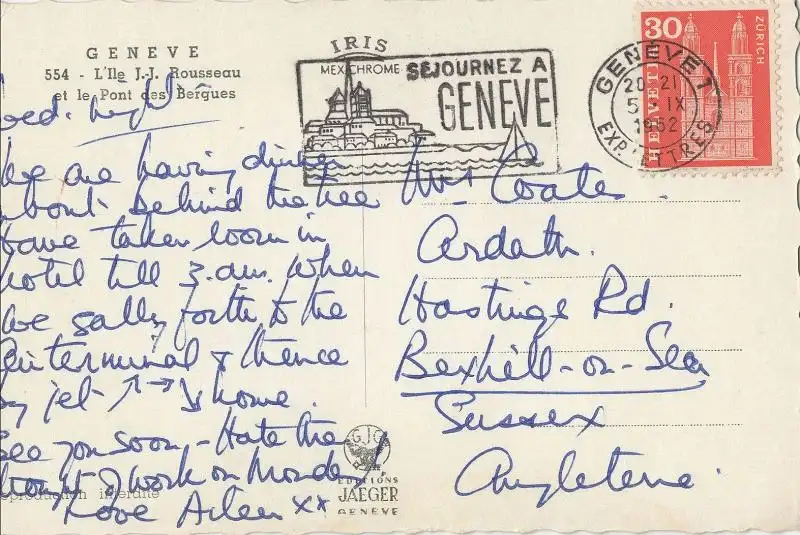 GENEVE
554 - L'Ile J.-J. Rousseau
et le Pont des Bergues
IRIS
MEXICHROME
SEJOURNEZ A
GENEVE
30
HELVETIA
ZÜRICH
GENEVE 1
20-21
5. IX
1962
EXP. LETTRES
Wed. night
We are having dinner
about behind the tree
Have taken room in
hotel till 3. am. when
we sally forth to the
air terminal & thence
by jet ↗→↘ home.
See you soon - Hate the
thought of work on Monday
Love Aileen xx
Mrs Coates.
Ardath.
Hastings Rd.
Bexhill-on-Sea
Sussex
Angleterre.
GJG
EDITIONS
JAEGER
GENEVE
reproduction interdite